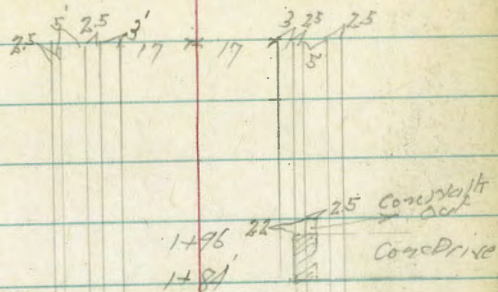 2.5 5' 2.5 3' 17 17 3 2.5 5 2.5
22 2.5 Conc Walk
1+96 Conc Drive
1+81'